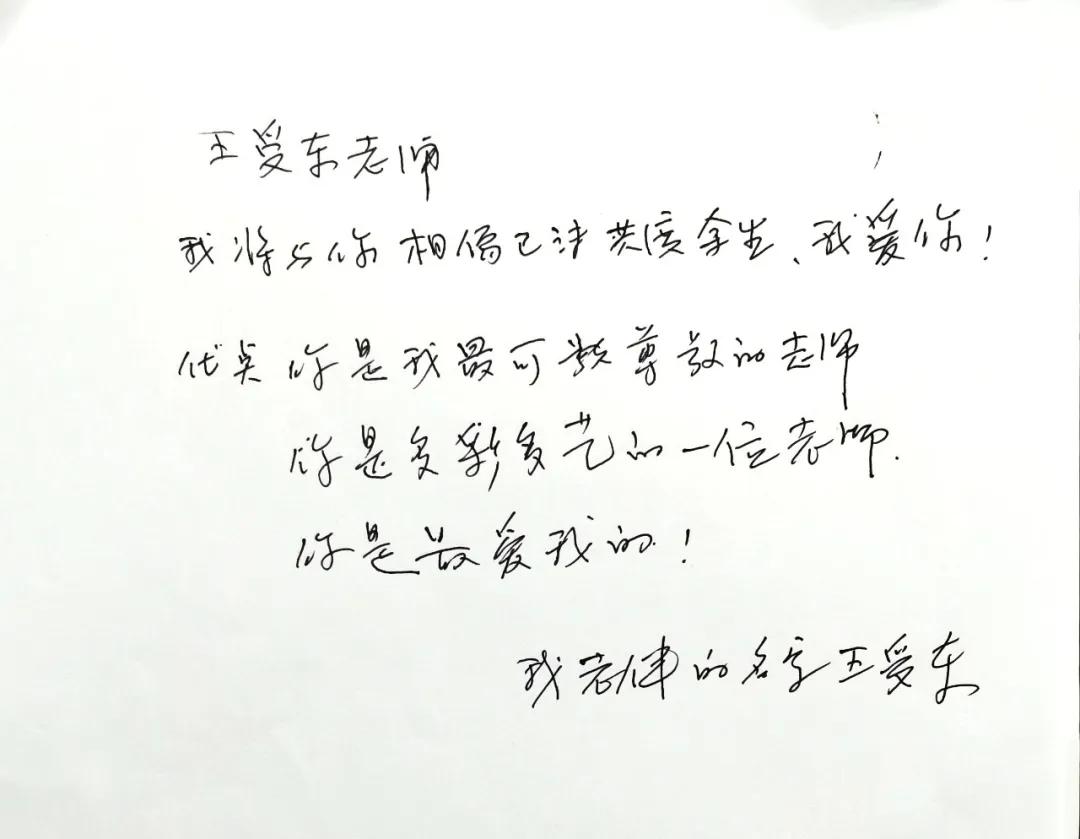 王受东老师
我将与你相偶己沫共度余生、我爱你！
优点 你是我最可敬尊敬的老师
你是多彩多艺的一位老师.
你是最爱我的！
我老伴的名字王受东